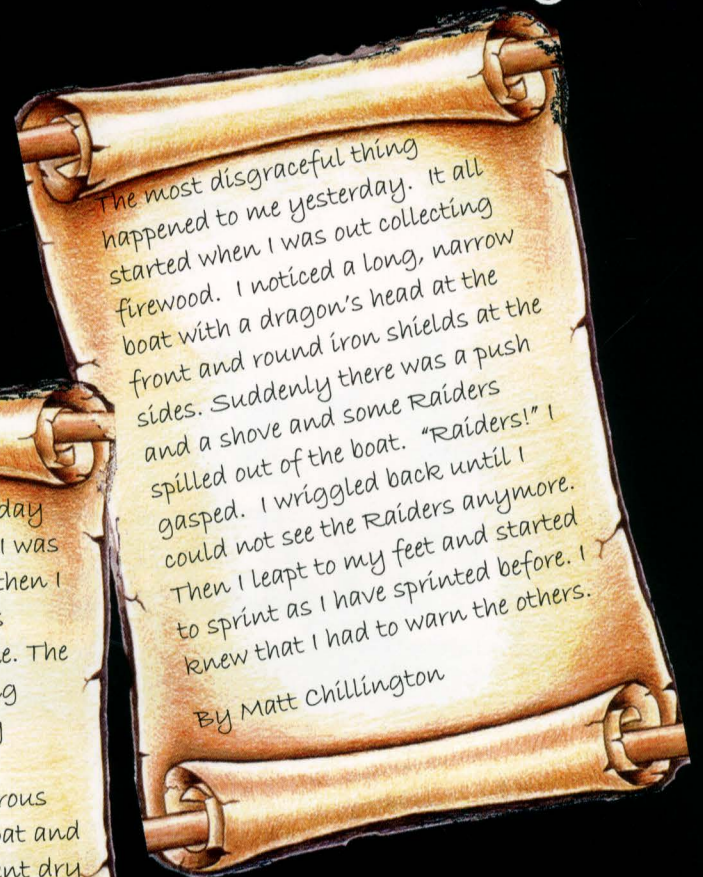 The most disgraceful thing
happened to me yesterday. It all
started when I was out collecting
firewood. I noticed a long, narrow
boat with a dragon's head at the
front and round iron shields at the
sides. Suddenly there was a push
and a shove and some Raiders
spilled out of the boat. "Raiders!" I
gasped. I wriggled back until I
could not see the Raiders anymore.
Then I leapt to my feet and started
to sprint as I have sprinted before. I
knew that I had to warn the others.
By Matt Chillington
day
I was
then I
e. The
rous
at and
nt dry